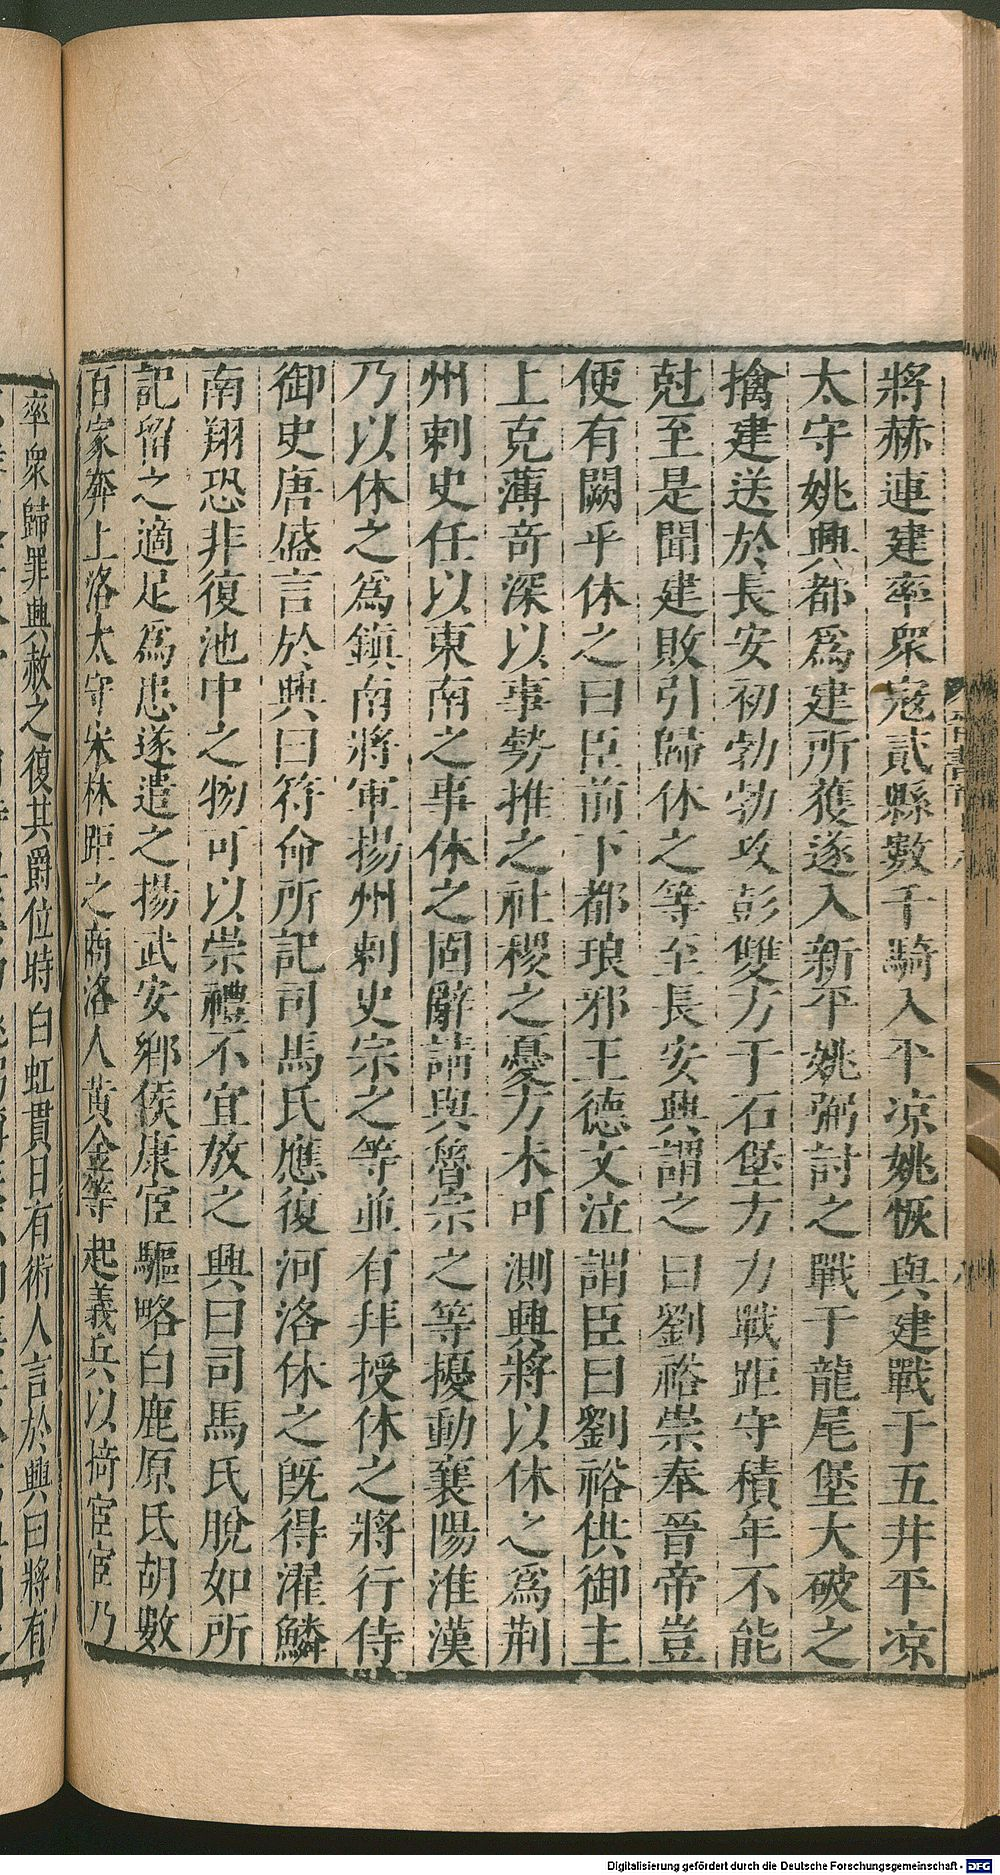 將赫連建率衆寇貳縣數千騎入平凉姚恢與建戰于五井平凉
太守姚興都爲建所獲遂入新平姚弼討之戰于龍尾堡大破之
擒建送於長安初勃勃攻彭雙方于石堡方力戰距守積年不能
尅至是聞建敗引歸休之等至長安興謂之曰劉裕崇奉晉帝豈
便有闕乎休之曰臣前下都琅邪王德文泣謂臣曰劉裕供御主
上克薄奇深以事勢推之社稷之憂方未可測興將以休之爲荆
州刺史任以東南之事休之固辭請與魯宗之等擾動襄陽淮漢
乃以休之爲鎮南將軍揚州刺史宗之等並有拜授休之將行侍
御史唐盛言於興曰符命所記司馬氏應復河洛休之旣得濯鱗
南翔恐非復池中之物可以崇禮不宜放之興曰司馬氏脫如所
記留之適足爲患遂遣之揚武安鄉侯康宦驅略白鹿原氐胡數
百家奔上洛太守宋林距之商洛人黄金等起義兵以掎宦宦乃
率衆歸罪興赦之復其爵位時白虹貫日有術人言於興曰將有
Digitalisierung gefördert durch die Deutsche Forschungsgemeinschaft - DFG